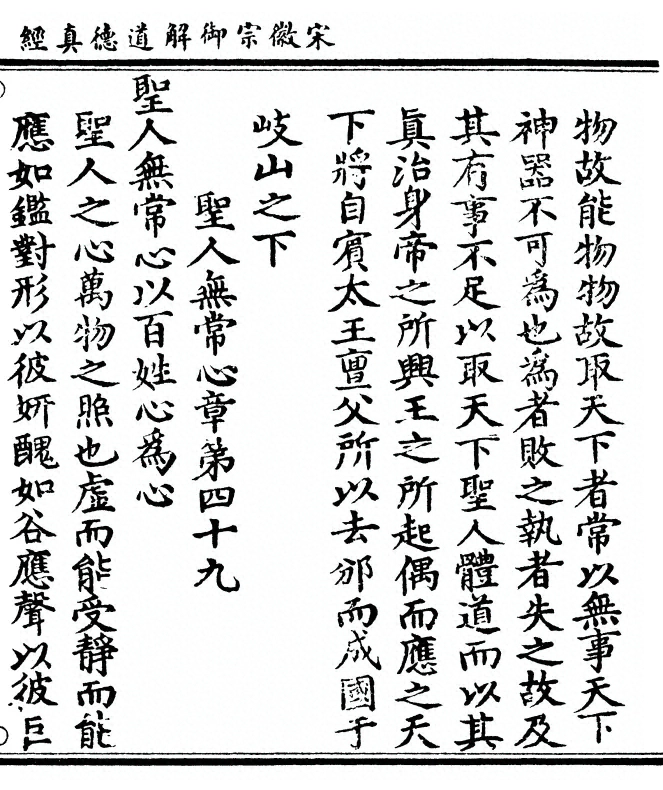 宋徽宗御解道德真經
物故能物物故取天下者常以無事天下
神器不可為也為者敗之執者失之故及
其有事不足以取天下聖人體道而以其
眞治身帝之所興王之所起偶而應之天
下將自賔太王亶父所以去邠而成國于
岐山之下
聖人無常心章第四十九
聖人無常心以百姓心爲心
聖人之心萬物之照也虛而能受靜而能
應如鑑對形以彼妍醜如谷應聲以彼巨